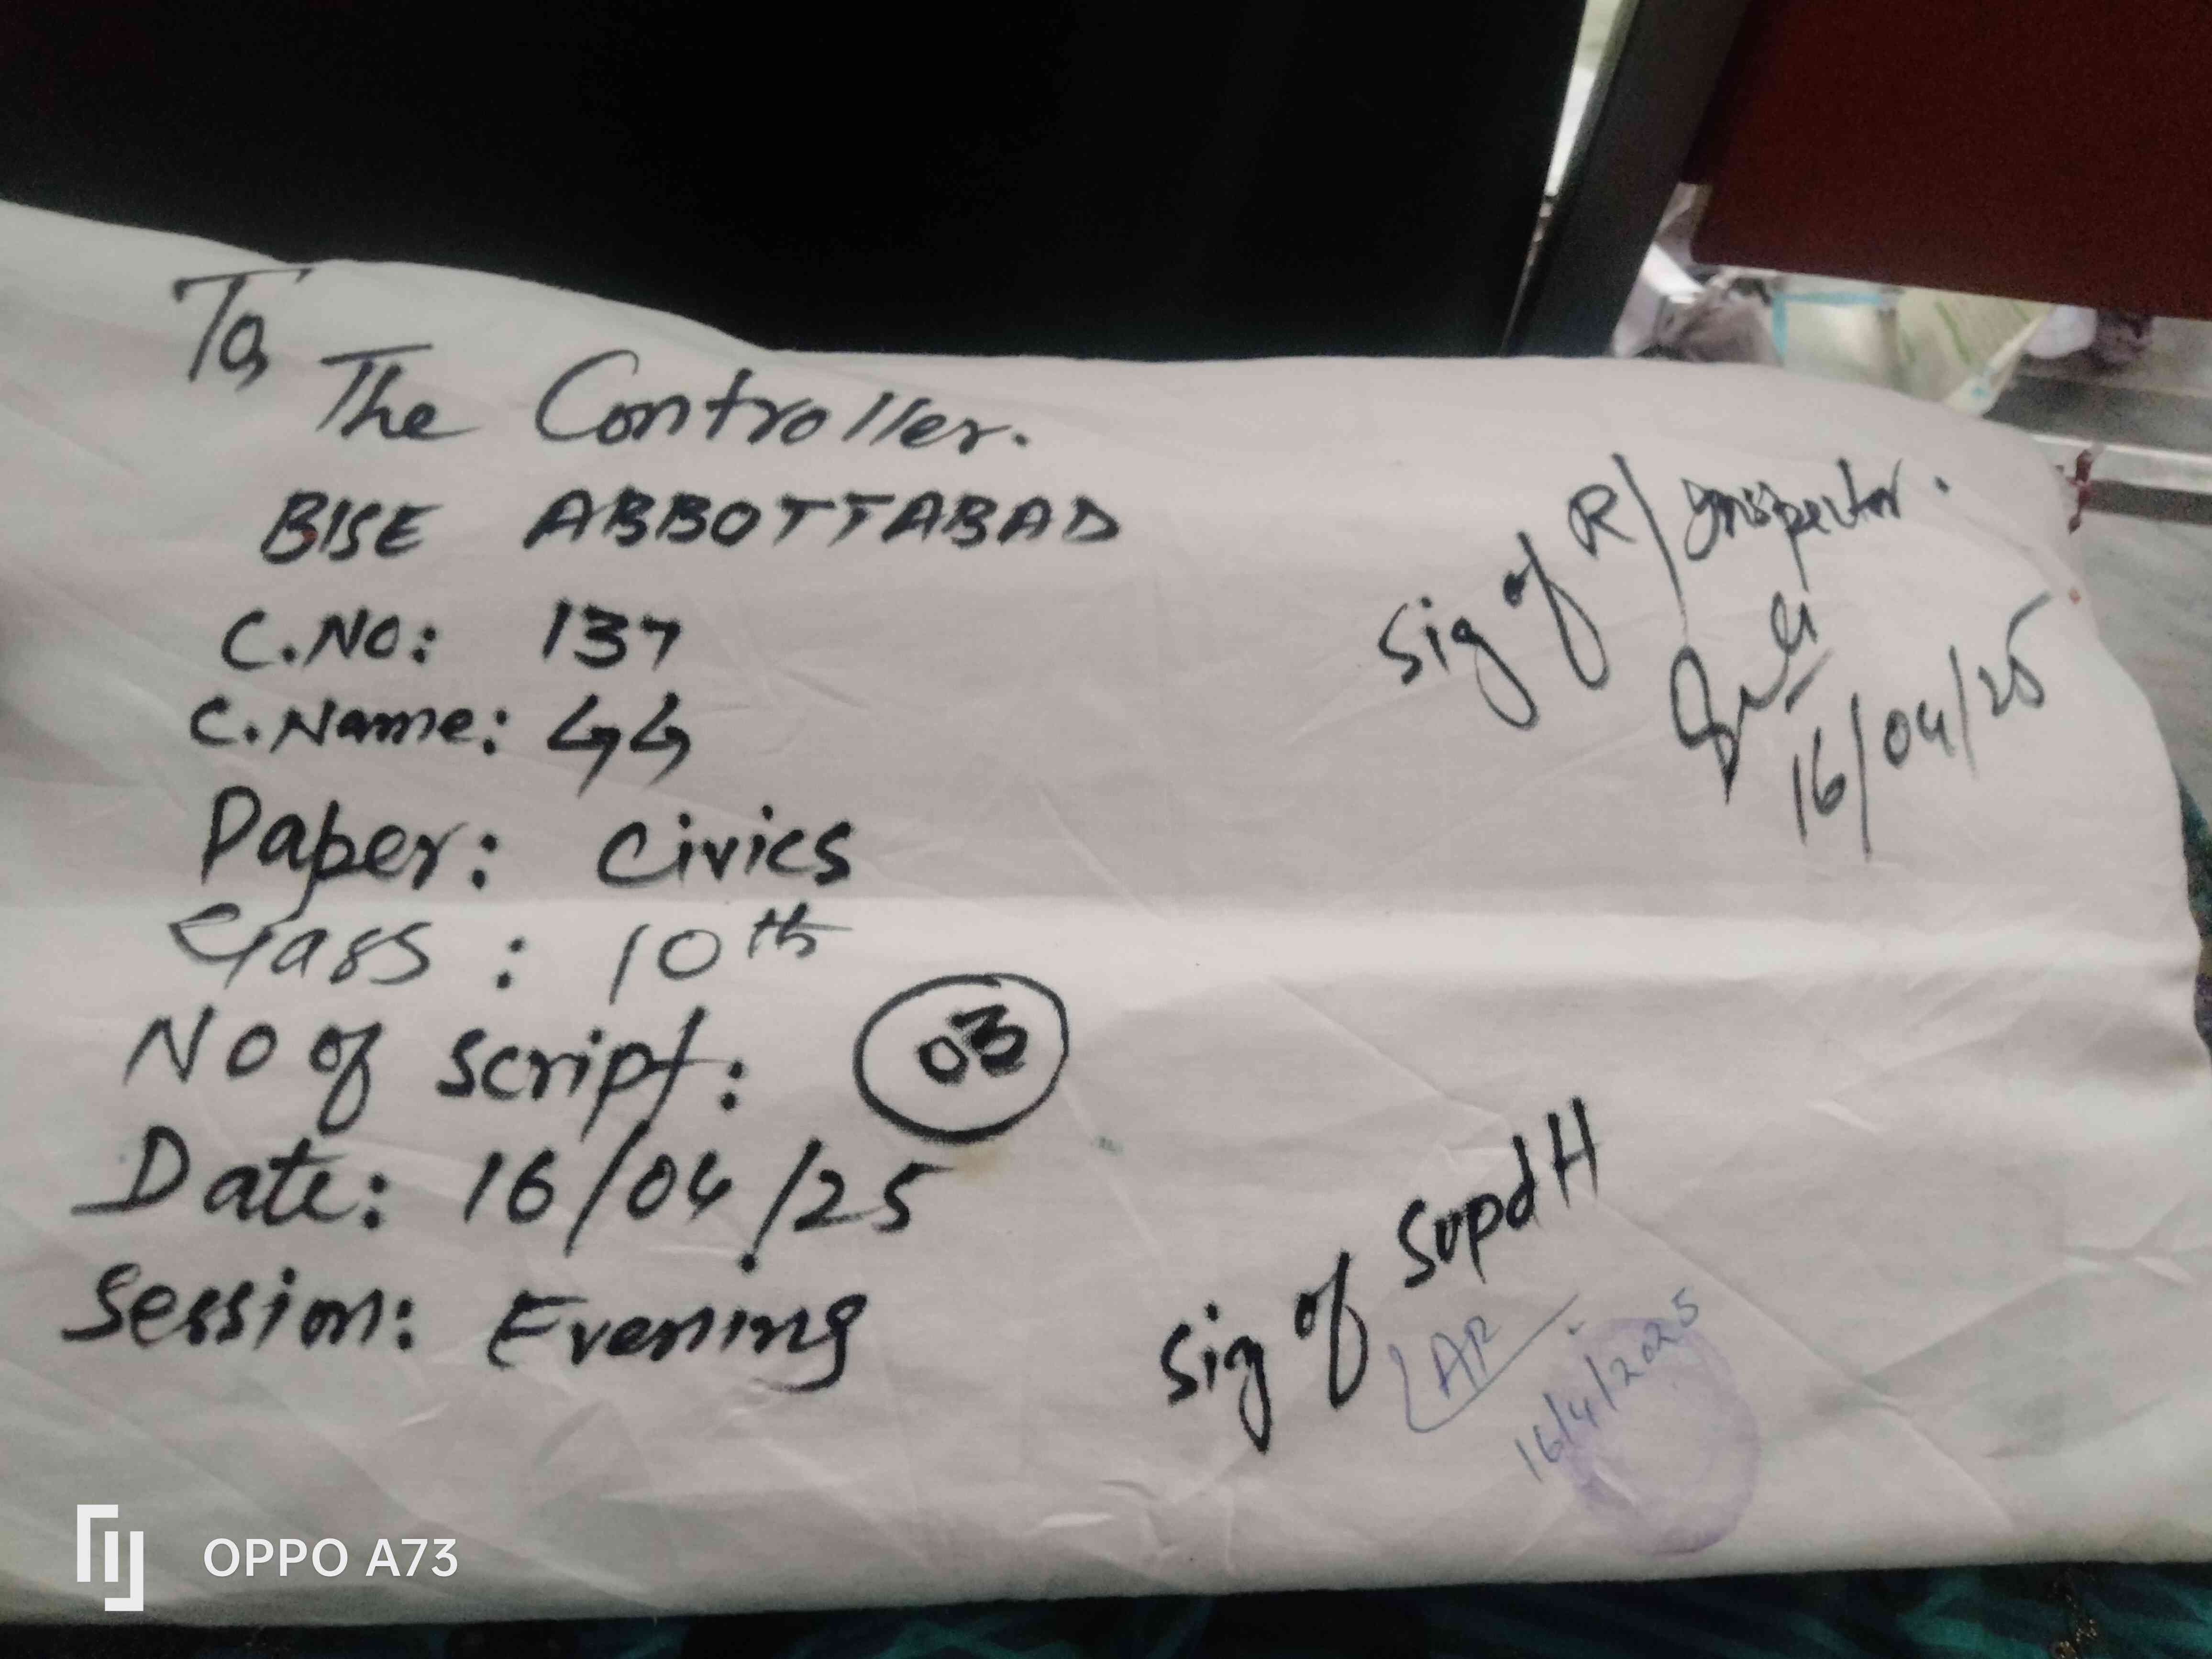 To,
The Controller.
BISE ABBOTTABAD
C.NO: 137
C.Name: GG
Paper: Civics
Class: 10th
No of script: 03
Date: 16/04/25
Session: Evening
Sig of R/Inspector.
16/04/25
Sig of Supdtt
16/4/2025
OPPO A73